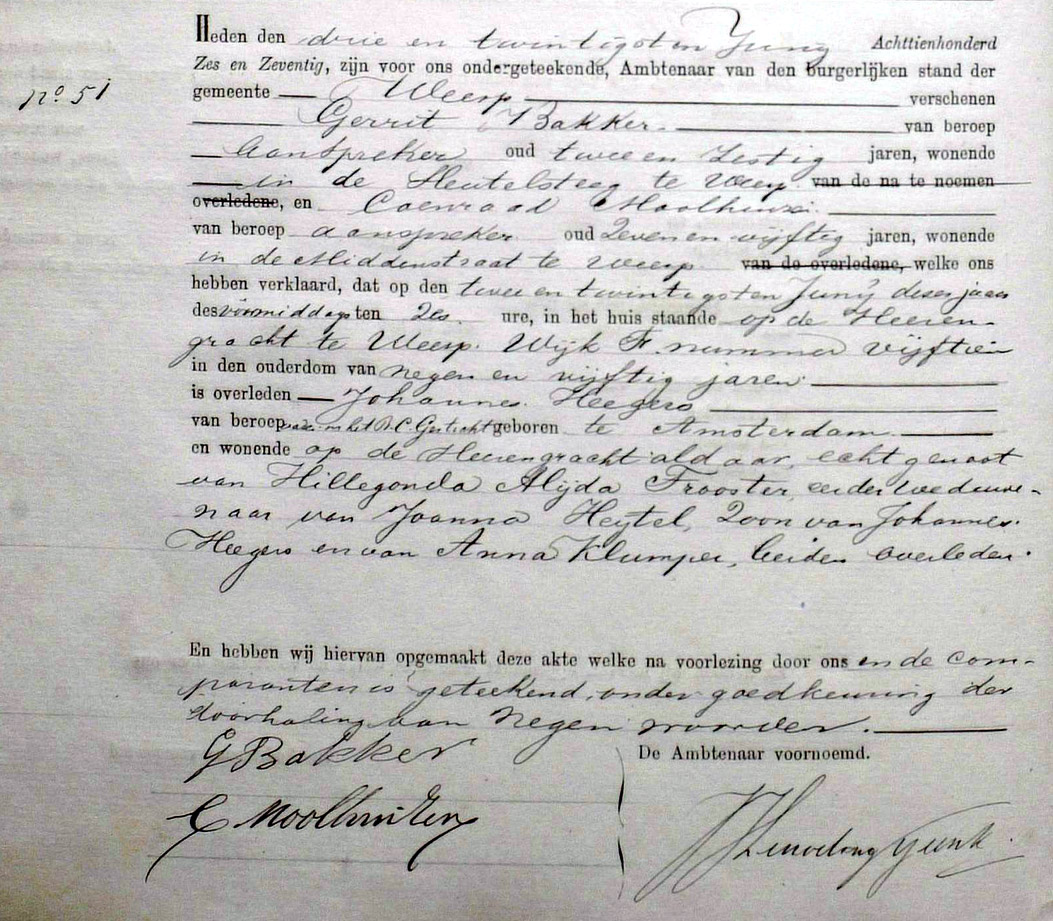 Heden den drie en twintigsten Junij Achttienhonderd
Zes en Zeventig, zijn voor ons ondergeteekende, Ambtenaar van den burgerlijken stand der
nº 51
gemeente Weesp verschenen
Gerrit Bakker van beroep
Aanspreker oud twee en Zestig jaren, wonende
in de Sleutelsteeg te Weesp van de na te noemen
overledene, en Coenraad Moolhuizen
van beroep aanspreker oud Zeven en vijftig jaren, wonende
in de Middenstraat te Weesp van de overledene, welke ons
hebben verklaard, dat op den twee en twintigsten Junij dezes jaars
des voormiddags ten Zes ure, in het huis staande op de Heeren-
gracht te Weesp. Wijk F. nummer vijftien
in den ouderdom van negen en vijftig jaren
is overleden Johannes Heegers
van beroep R.C. Gesticht geboren te Amsterdam
en wonende op de Heerengracht aldaar, echtgenoot
van Hillegonda Alijda Trooster, eerder weduwe-
naar van Joanna Heytel, Zoon van Johannes
Heegers en van Anna Klumper, beiden overleden.
En hebben wij hiervan opgemaakt deze akte welke na voorlezing door ons en de com-
paranten is geteekend, onder goedkeuring der
doorhaling van negen woorden.
G Bakker
De Ambtenaar voornoemd.
C Moolhuizen